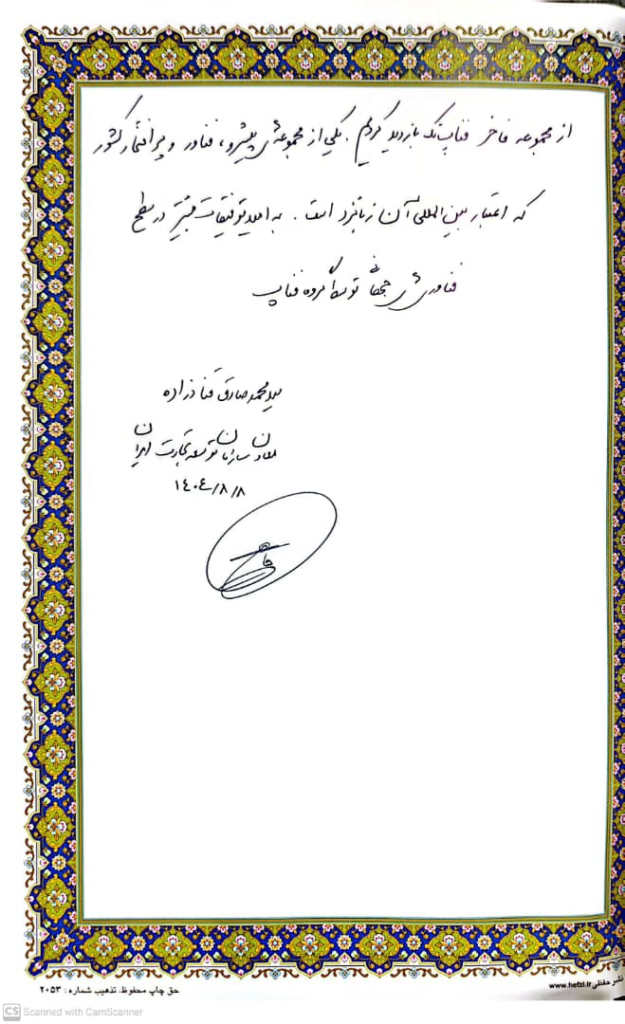 از مجموعه فاخر فناپ‌تک بازدید کردیم. یکی از مجموعه‌های پیشرو، فناور و پر افتخار کشور
که اعتبار بین‌المللی آن زبانزد است. به امید توفیقات بیشتر در سطح
فناوری‌های جهانی توسط گروه فناپ
سید محمد صادق قنادزاده
معاون سازمان توسعه تجارت ایران
۱۴۰۴/۸/۸
حق چاپ محفوظ. تذهیب شماره: ۲۰۵۳
نشر حفظی www.hefzi.ir
CS Scanned with CamScanner